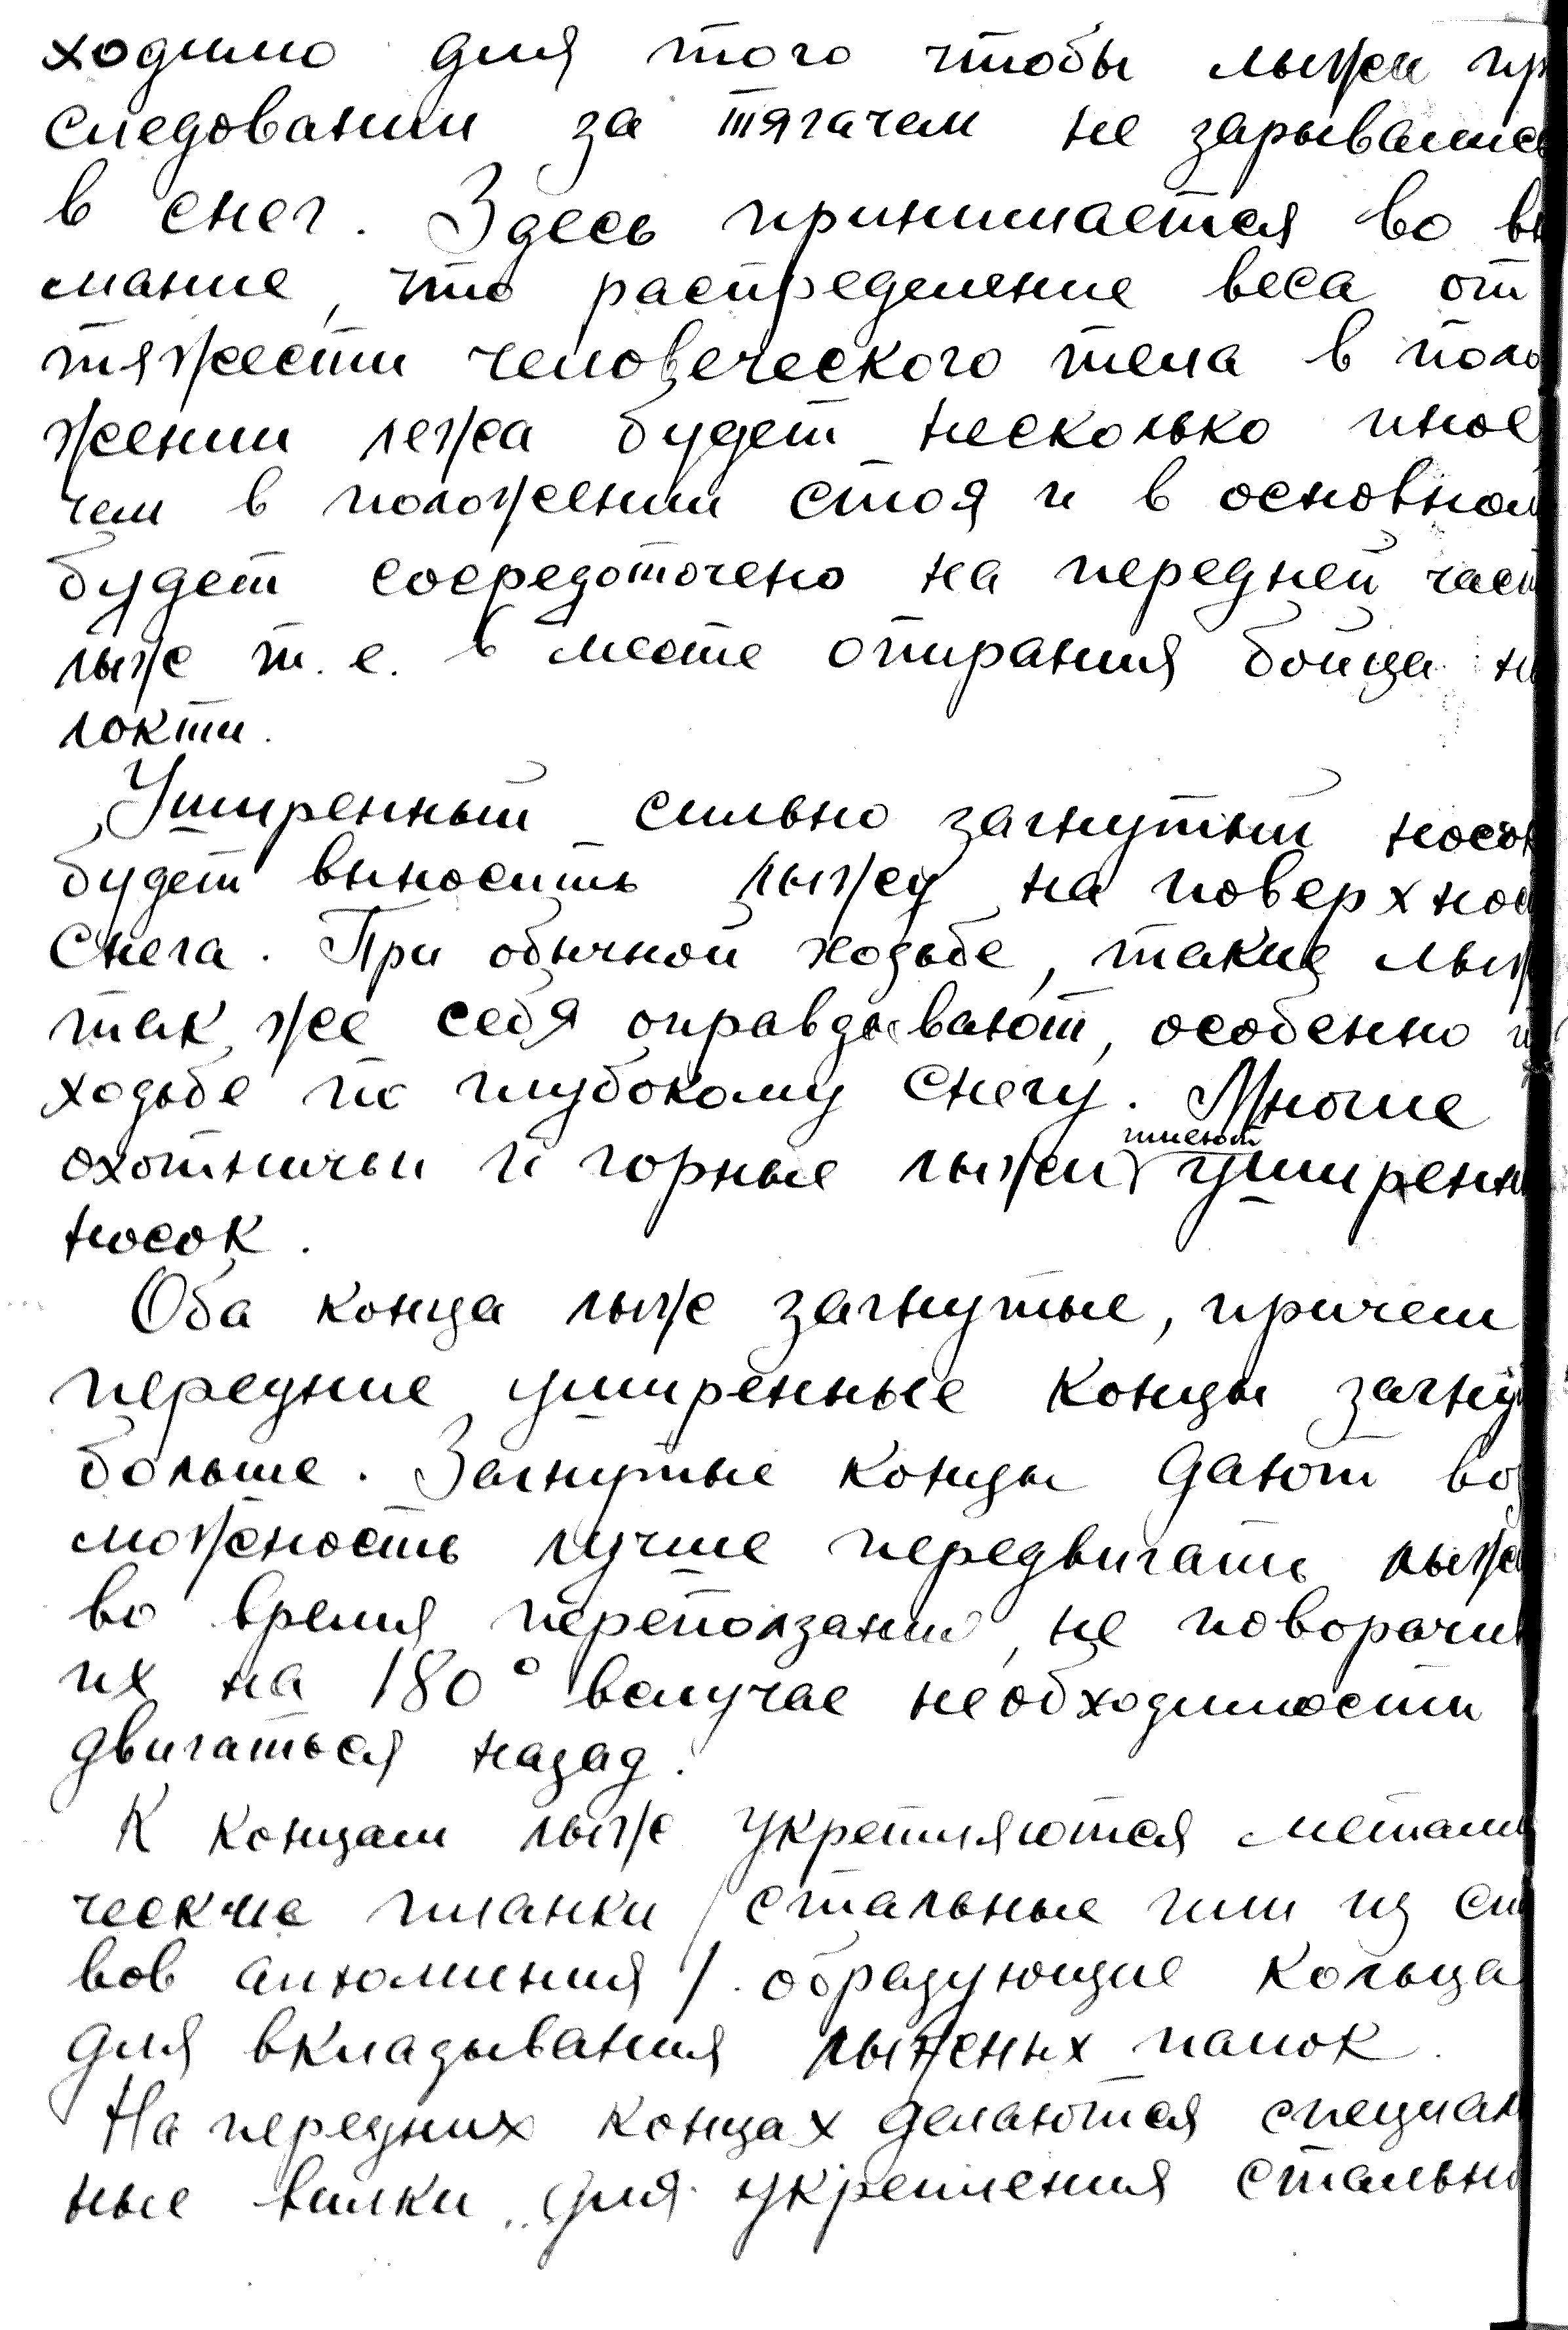 ходимо для того чтобы лыжи пр
следовании за тягачем не зарывались
в снег. Здесь принимается во вн
мание, что распределение веса от
тяжести человеческого тела в поло
жении лежа будет несколько иное
чем в положении стоя и в основном
будет сосредоточено на передней част
лыж т.е. в месте опирания бойца на
локти.
Уширенный сильно загнутый носок
будет выносить лыжу на поверхнос
снега. При обычной ходьбе, такие лыж
так же себя оправдывают, особенно п
ходьбе по глубокому снегу. Многие
охотничьи и горные лыжи имеют уширенн
носок.
Оба конца лыж загнутые, причем
передние уширенные концы загну
больше. Загнутые концы дают воз
можность лучше передвигать лыжи
во время переползания, не поворачив
их на 180° вслучае необходимости
двигаться назад.
К концам лыж укрепляются метали
ческие планки /стальные или из спл
вов алюминия/. образующие кольца
для вкладывания лыжных палок.
На передних концах делаются специаль
ные вилки для укрепления стальны